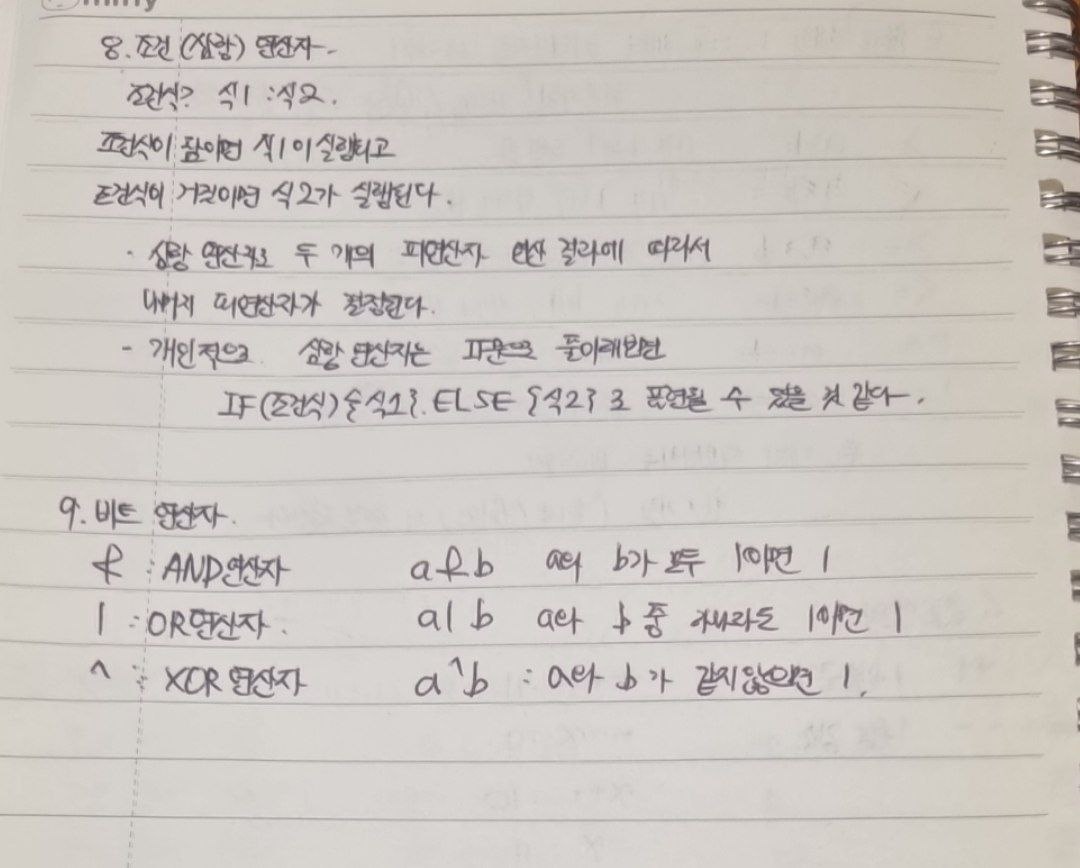 8. 조건 (삼항) 연산자.
조건식? 식1 : 식2.
조건식이 참이면 식1이 실행되고
조건식이 거짓이면 식2가 실행된다.
· 삼항 연산자로 두 개의 피연산자 연산 결과에 따라서
나머지 피연산자가 결정된다.
- 개인적으로 삼항 연산자는 IF문으로 풀이해보면
IF (조건식) {식1}. ELSE {식2} 로 표현될 수 있을 것 같다.
9. 비트 연산자.
& : AND연산자 a & b a와 b가 모두 1이면 1
| : OR연산자. a | b a와 b 중 하나라도 1이면 1
^ : XOR 연산자 a ^ b : a와 b가 같지않으면 1.